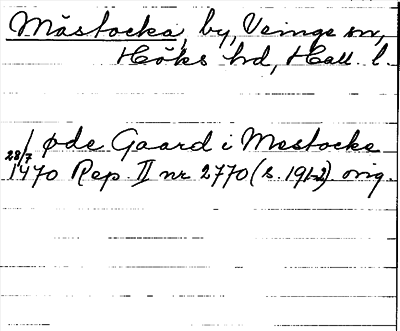 Måstocka, by, Veinge sn,
Höks hd, Hall. l.
28/7 øde Gaard i Mostocke
1470 Rep. II nr 2770 (s. 191-2) orig.